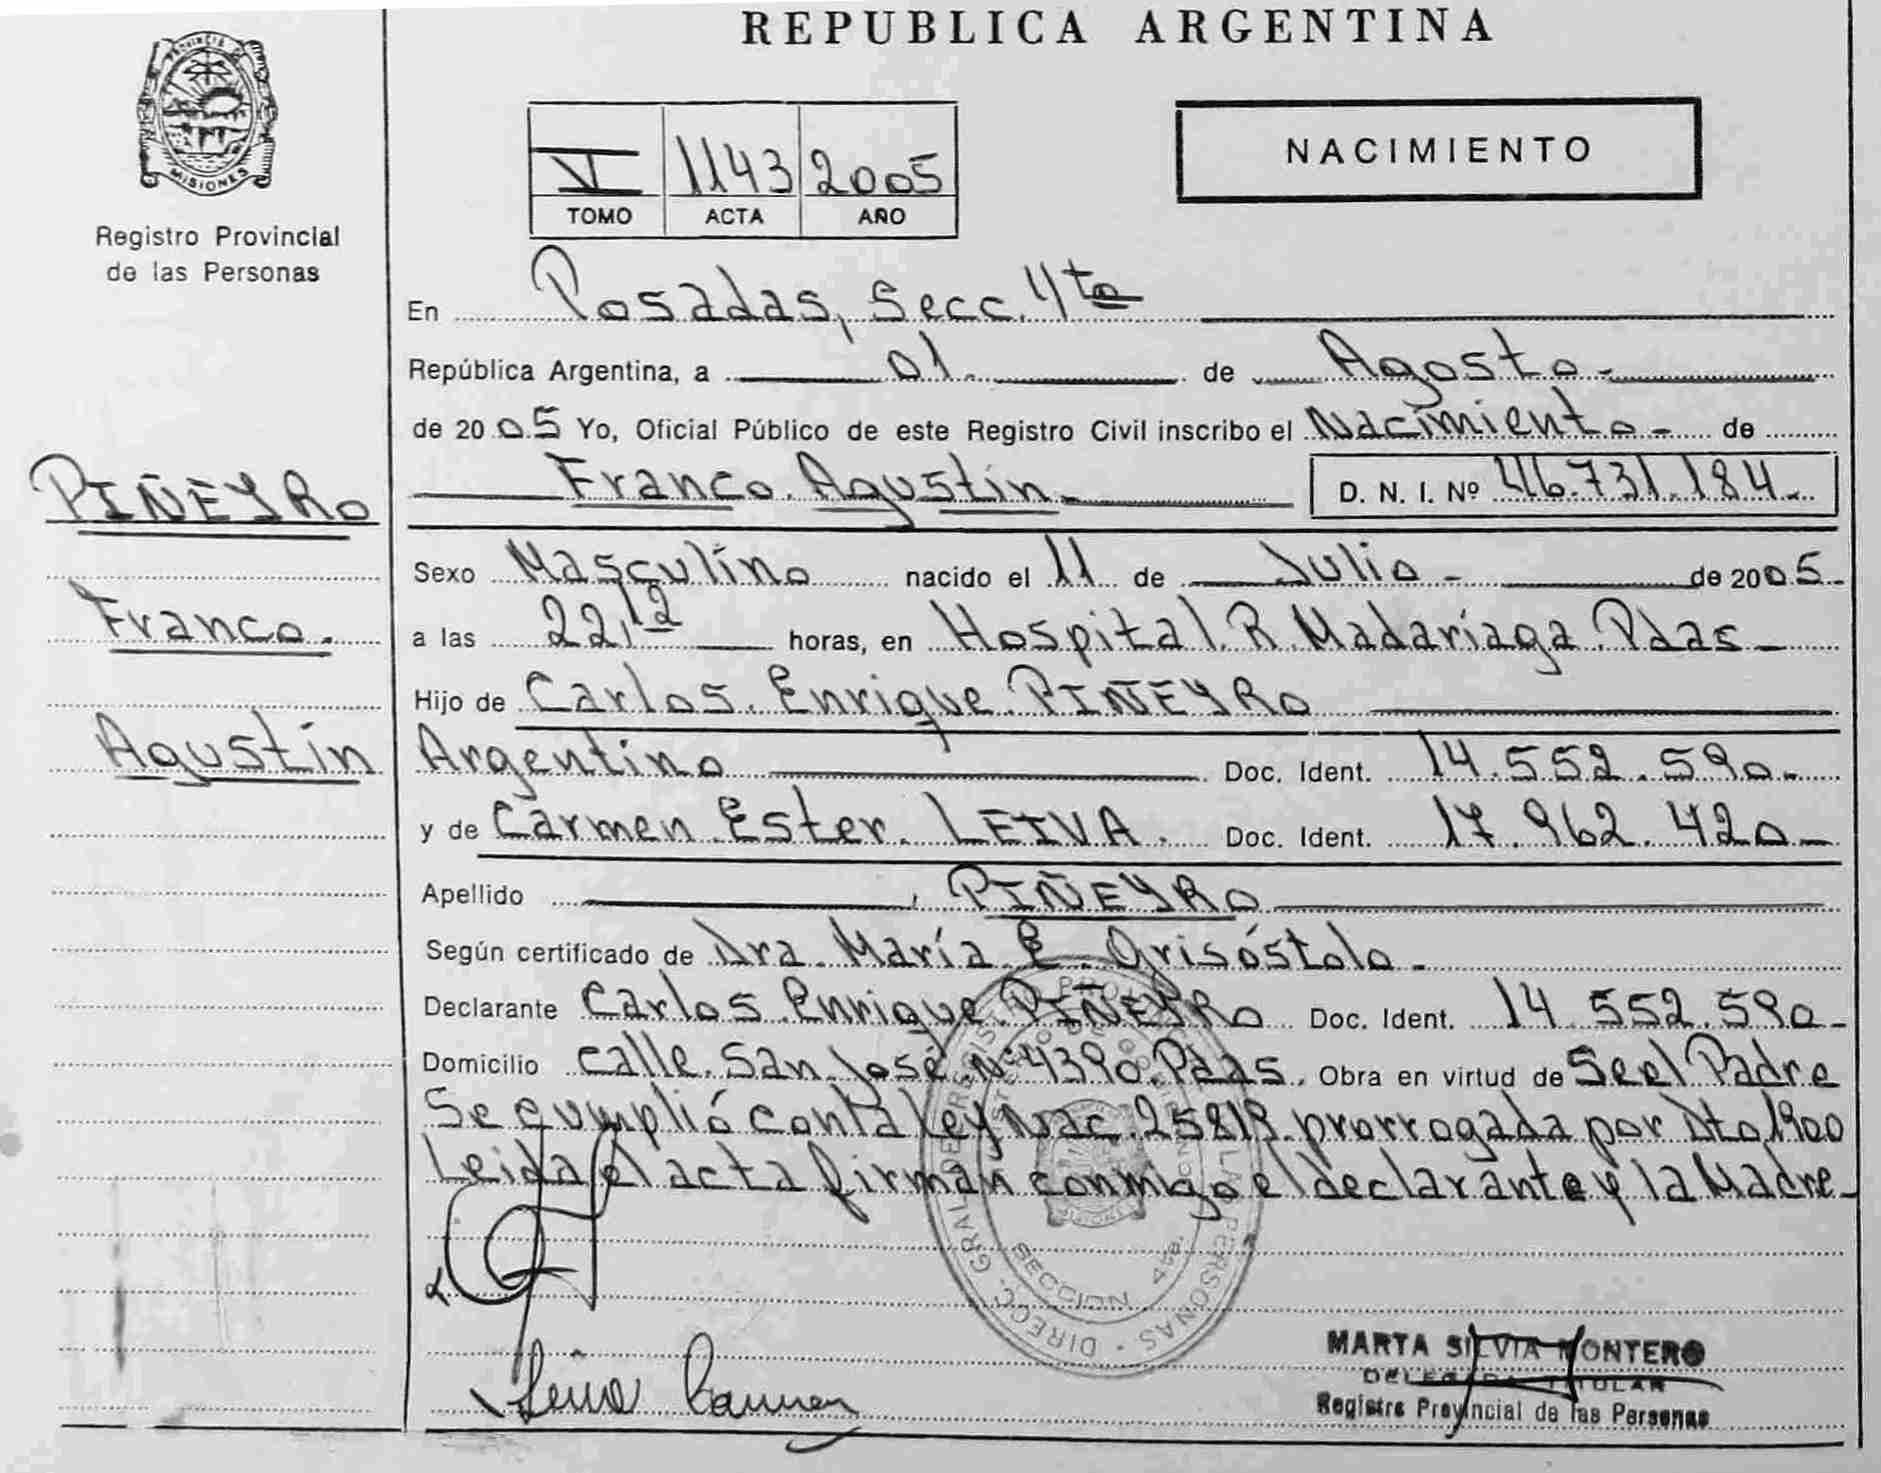 REPUBLICA ARGENTINA
PROVINCIA DE
MISIONES
Registro Provincial
de las Personas
VI 1143 2005
TOMO ACTA AÑO
NACIMIENTO
En Posadas, Secc. 4ta
República Argentina, a 01. de Agosto.-
de 2005 Yo, Oficial Público de este Registro Civil inscribo el Nacimiento.- de
PIÑEYRO
Franco. Agustín.-
D. N. I. Nº 46.731.184.-
Sexo Masculino nacido el 11 de Julio - de 2005.-
Franco.
a las 22,12 horas, en Hospital. R. Madariaga. Pdas -
Hijo de Carlos. Enrique. PIÑEYRO
Agustín
Argentino Doc. Ident. 14.552.590.-
y de Carmen Ester. LEIVA. Doc. Ident. 17.962.420-
Apellido PIÑEYRO
Según certificado de Dra. María E. Grisóstolo.-
Declarante Carlos Enrique PIÑEYRO Doc. Ident. 14.552.590-
Domicilio calle. San José. Nº 4390. Pdas. Obra en virtud de Ser el Padre
Se cumplió con la Ley Nac. 25819 prorrogada por Dto 1900
Leida el acta firman conmigo el declarante y la Madre-
DIRECC. GRAL DE REGISTRO PROV. LAS PERSONAS
SECCION 4ta.
MISIONES
Leiva Carmen
MARTA SILVIA MONTERO
DELEGADA TITULAR
Registro Provincial de las Personas